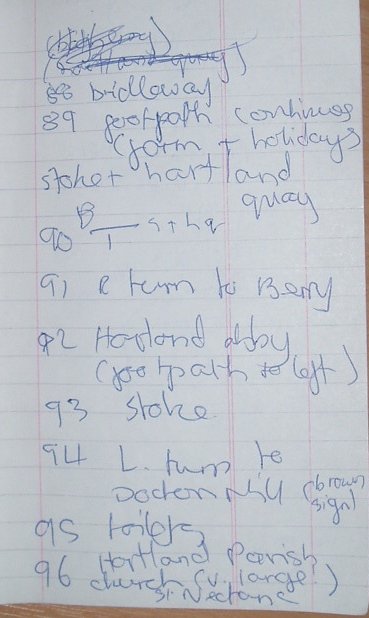 88 bridleway
89 footpath continues
(farm + holidays
stoke + hartland
quay
90 B s + hq
T
91 R turn to Berry
92 Hartland abby
(footpath to left)
93 stoke
94 L. turn to
Docton Mill (brown
sign)
95 toilets
96 Hartland Parish
church (v. large)
St Nectans